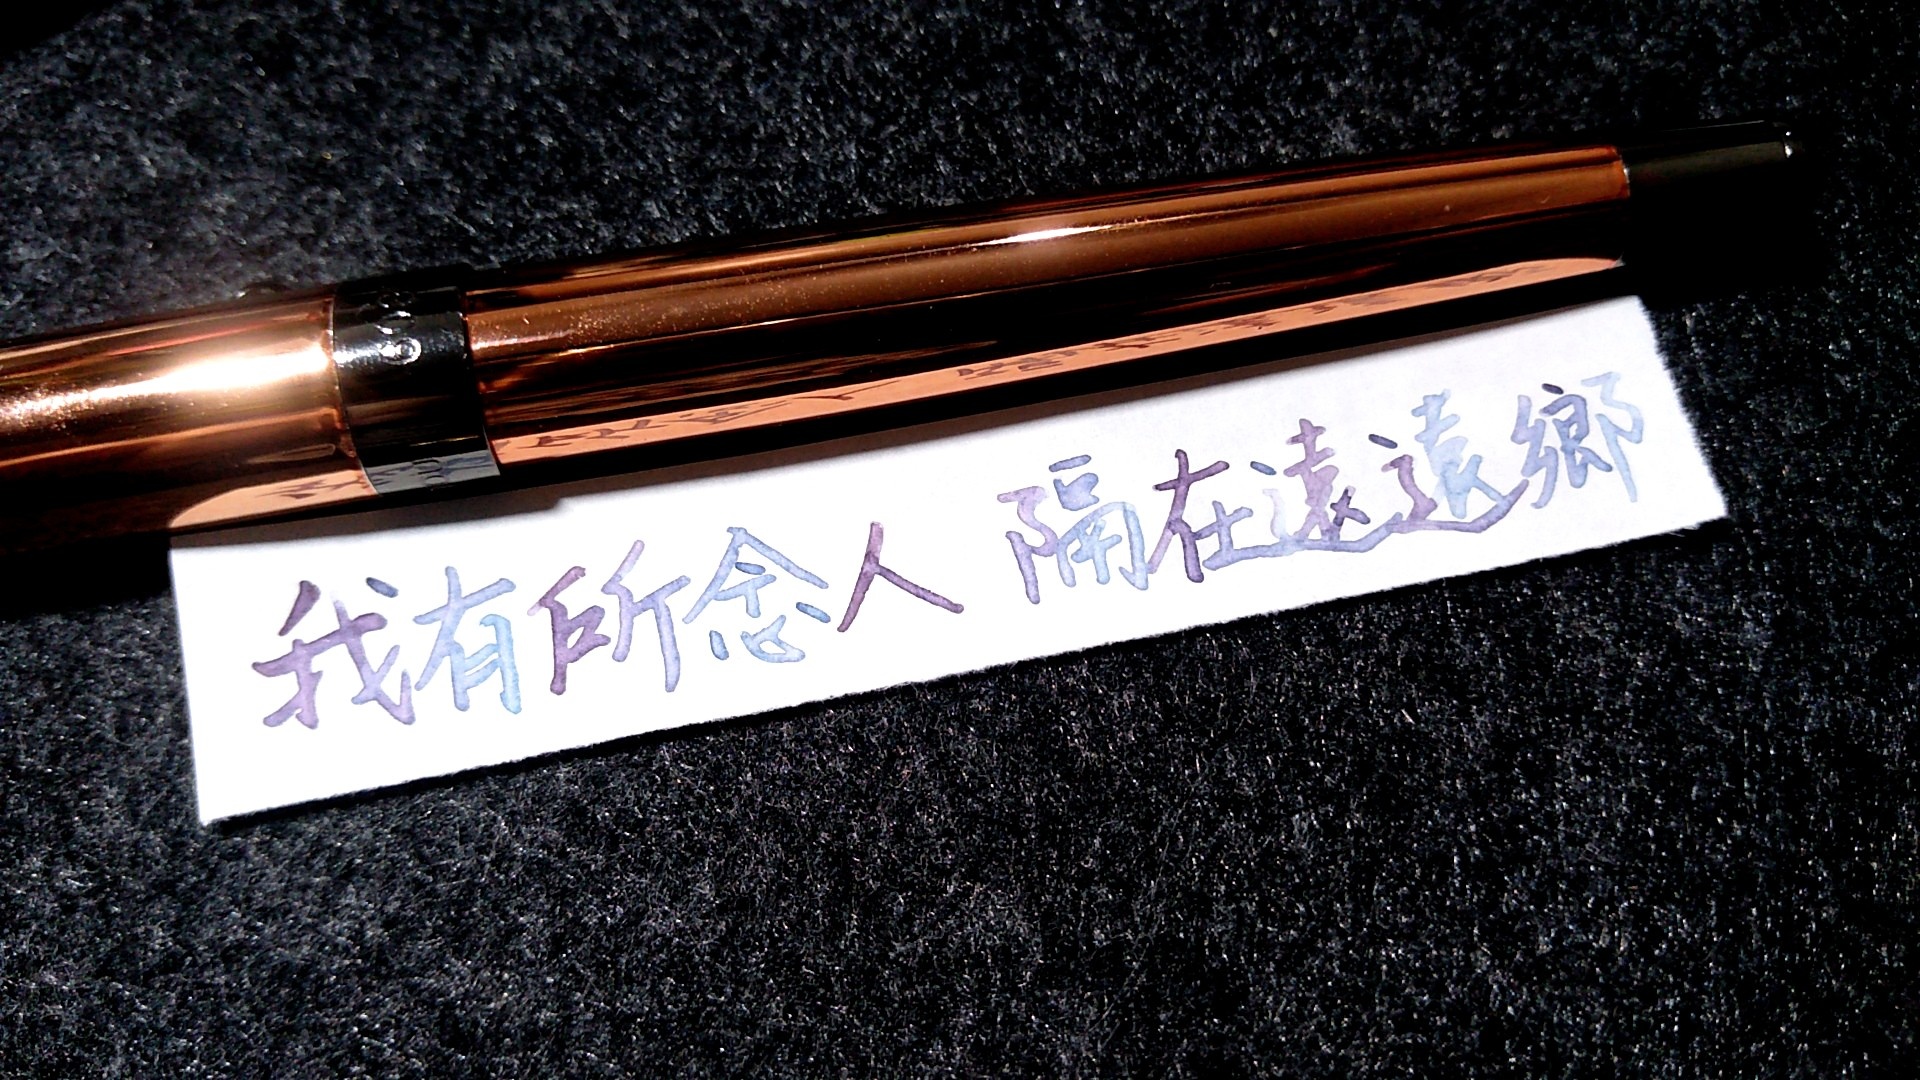 我有所念人 隔在遠遠鄉